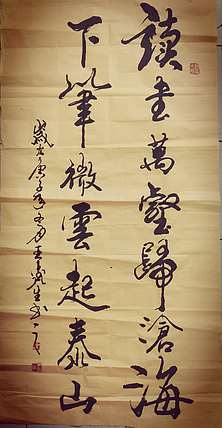 讀書萬壑歸滄海
下筆微雲起泰山
歲在庚子冬月王